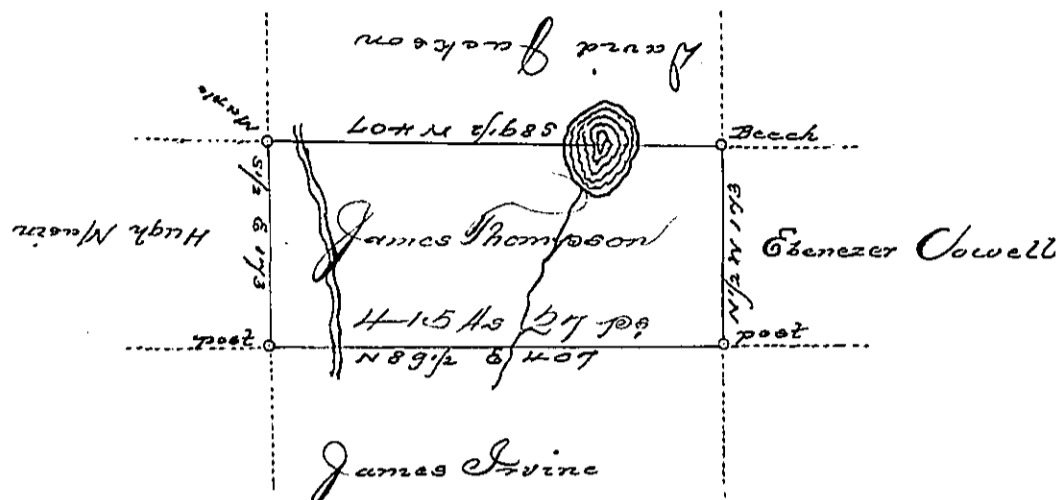 David Jackson
Maple
S 89 1/2 W 407
Beech
S 1/2 E 173
N 1/2 W 173
Hugh
James Thompson
Ebenezer Vowell
415 As 27 ps
Post
N 89 1/2 E 407
Post
James Irvine